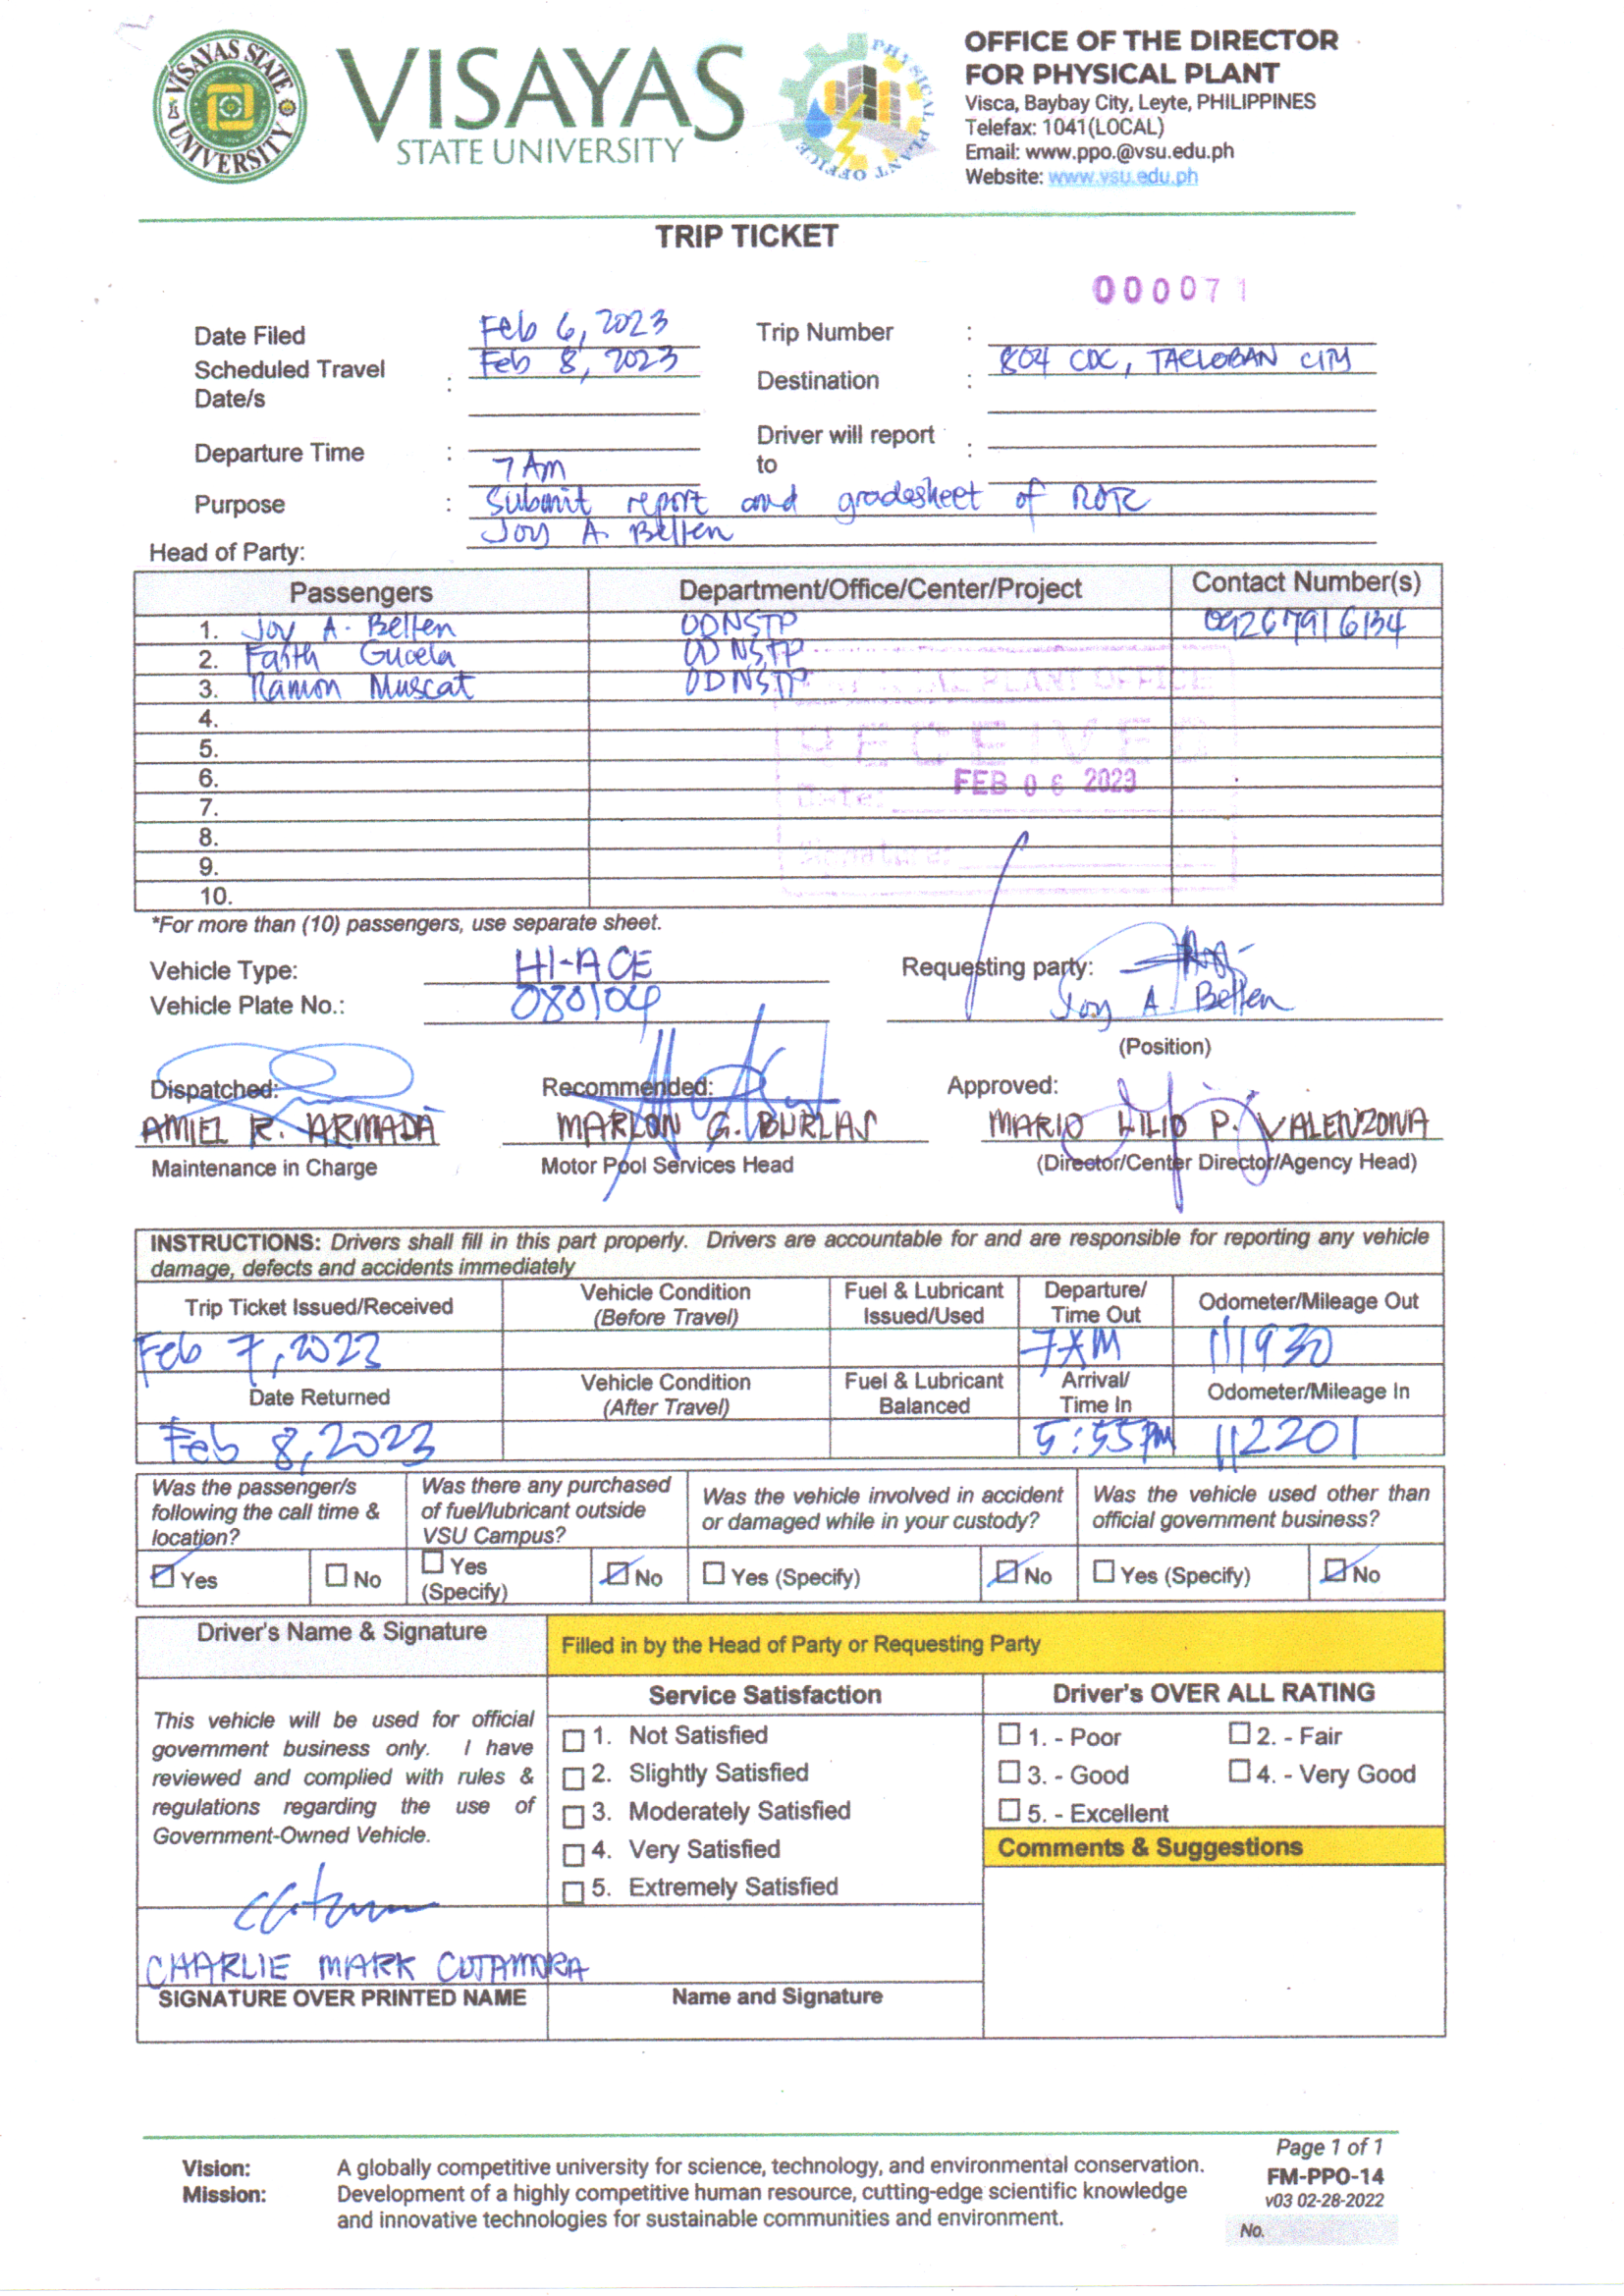 VISAYAS STATE UNIVERSITY
VISAYAS
STATE UNIVERSITY
PHYSICAL PLANT OFFICE
OFFICE OF THE DIRECTOR
FOR PHYSICAL PLANT
Visca, Baybay City, Leyte, PHILIPPINES
Telefax: 1041(LOCAL)
Email: www.ppo.@vsu.edu.ph
Website: www.vsu.edu.ph
TRIP TICKET
000071
Date Filed Feb 6, 2023 Trip Number :
Scheduled Travel Date/s : Feb 8, 2023 Destination : 804 CDC, TACLOBAN CITY
Departure Time : 7 Am Driver will report to :
Purpose : Submit report and gradesheet of ROTC
Head of Party: Joy A. Bellen
Passengers Department/Office/Center/Project Contact Number(s)
1. Joy A. Bellen ODNSTP 09267916134
2. Faith Gucela ODNSTP
3. Ramon Muscat ODNSTP
4.
5.
6.
7.
8.
9.
10.
PLANT OFFICE
RECEIVED
Date: FEB 06 2023
Signature:
*For more than (10) passengers, use separate sheet.
Vehicle Type: HI-ACE Requesting party:
Vehicle Plate No.: 080104 Joy A. Bellen
(Position)
Dispatched: Recommended: Approved:
AMIEL R. ARMADA MARLON G. BURLAS MARIO LILIO P. VALENZONA
Maintenance in Charge Motor Pool Services Head (Director/Center Director/Agency Head)
INSTRUCTIONS: Drivers shall fill in this part properly. Drivers are accountable for and are responsible for reporting any vehicle
damage, defects and accidents immediately
Trip Ticket Issued/Received Vehicle Condition (Before Travel) Fuel & Lubricant Issued/Used Departure/ Time Out Odometer/Mileage Out
Feb 7, 2023 7AM 111930
Date Returned Vehicle Condition (After Travel) Fuel & Lubricant Balanced Arrival/ Time In Odometer/Mileage In
Feb 8, 2023 5:55PM 112201
Was the passenger/s following the call time & location? Was there any purchased of fuel/lubricant outside VSU Campus? Was the vehicle involved in accident or damaged while in your custody? Was the vehicle used other than official government business?
Yes No Yes (Specify) No Yes (Specify) No Yes (Specify) No
Driver's Name & Signature Filled in by the Head of Party or Requesting Party
Service Satisfaction Driver's OVER ALL RATING
This vehicle will be used for official
government business only. I have
reviewed and complied with rules &
regulations regarding the use of
Government-Owned Vehicle.
1. Not Satisfied
2. Slightly Satisfied
3. Moderately Satisfied
4. Very Satisfied
5. Extremely Satisfied
1. - Poor 2. - Fair
3. - Good 4. - Very Good
5. - Excellent
Comments & Suggestions
CHARLIE MARK CUTAMORA
SIGNATURE OVER PRINTED NAME Name and Signature
Vision: A globally competitive university for science, technology, and environmental conservation.
Mission: Development of a highly competitive human resource, cutting-edge scientific knowledge
and innovative technologies for sustainable communities and environment.
Page 1 of 1
FM-PPO-14
v03 02-28-2022
No.